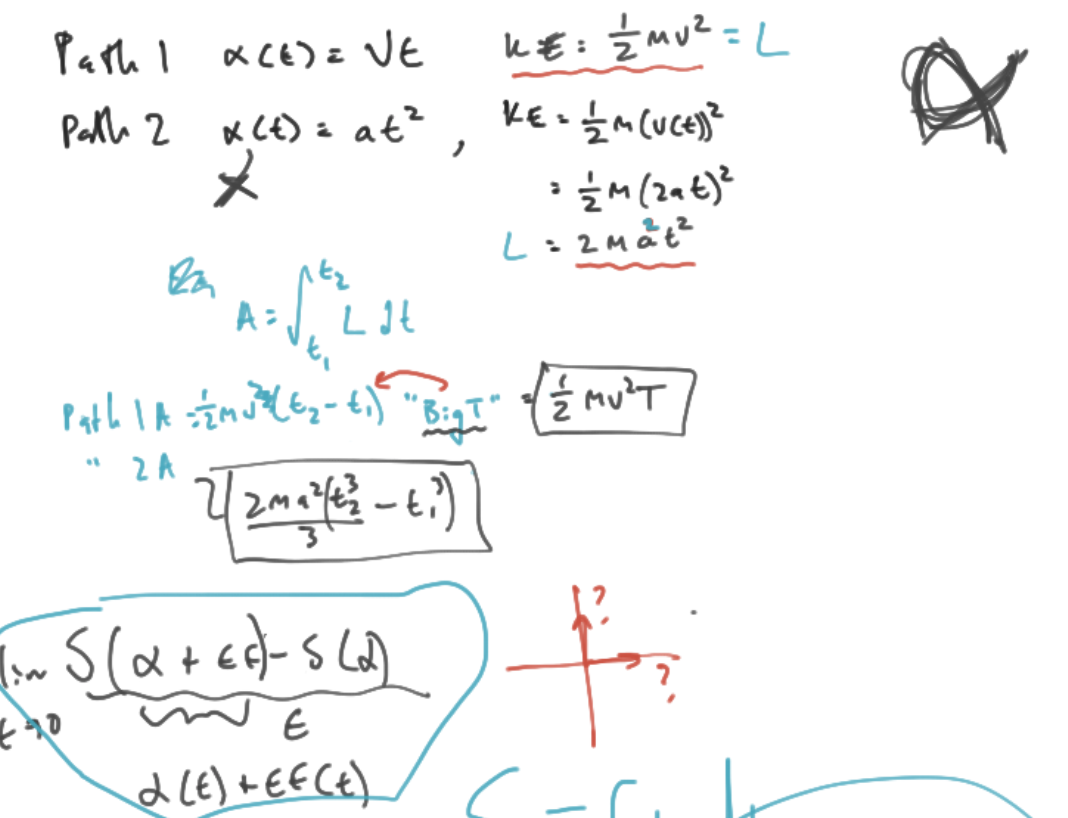 Path 1 α(t) = Vt KE = 1/2 mv² = L
Path 2 α(t) = at² , KE = 1/2 m(v(t))²
x = 1/2 m (2at)²
L = 2ma²t²
A = ∫_{t₁}^{t₂} L dt
Path 1 A = 1/2 mv²(t₂ - t₁) "Big T" = 1/2 mv²T
" 2 A 2ma²(t₂³ - t₁³)/3
lim_{ε→0} (S(α + εf) - S(α))/ε
? ?
α(t) + εf(t)